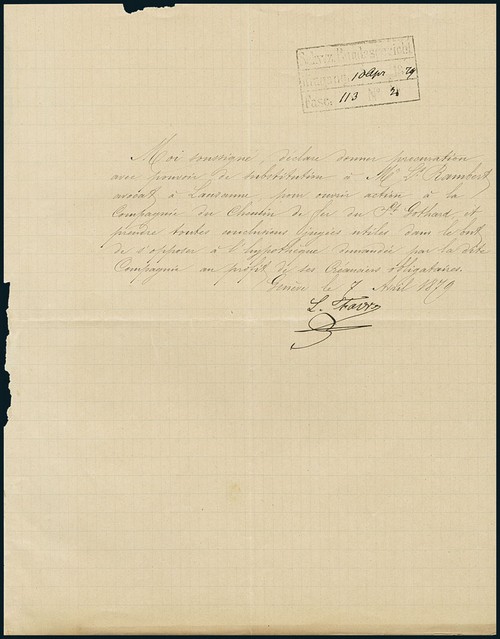 Schweiz. Bundesgericht
Eingang 10 Apr. 1879
Fasc. 113 No. 2
Moi soussigné, déclare donner procuration
avec pouvoir de substitution à Mr. Ls. Rambert
avocat à Lausanne, pour ouvrir action à la
Compagnie du Chemin de fer du St. Gothard, et
prendre toutes conclusions jugées utiles dans le but
de s'opposer à l'hypothèque demandée par la dite
Compagnie au profit de ses Créanciers obligataires.
Genève le 7 Avril 1879
L. Favre